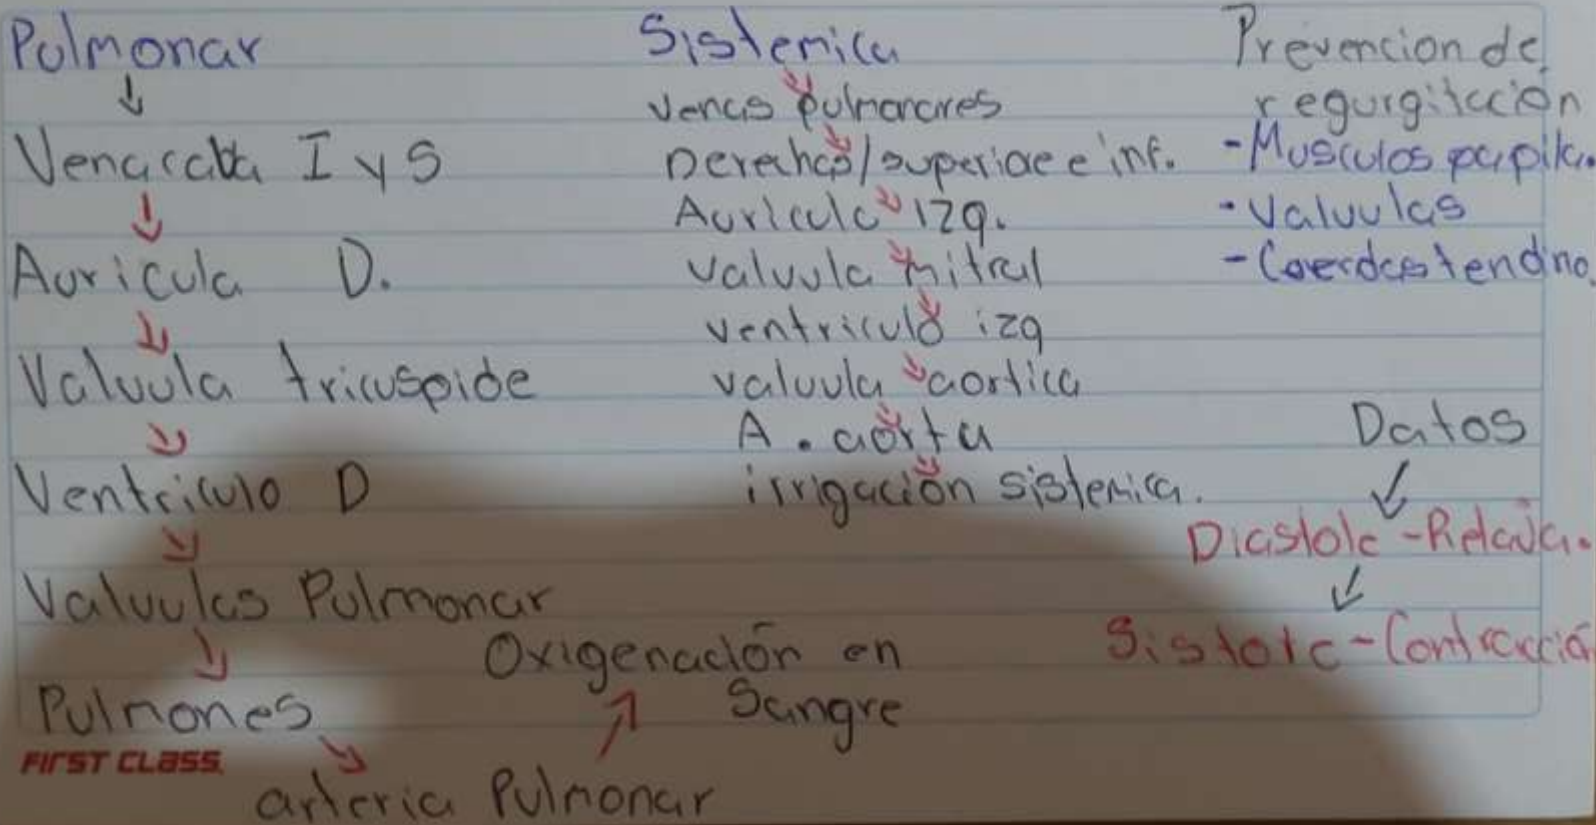 Pulmonar
Vena cava I y S
Auricula D.
Valvula tricuspide
Ventriculo D
Valvulas Pulmonar
Pulmones
arteria Pulmonar
Oxigenación en
Sangre
FIRST CLASS
Sistemica
Venas pulmonares
Derechas/superiore e inf.
Auricula izq.
valvula mitral
ventriculo izq
valvula aortica
A. aorta
irrigación sistemica.
Prevencion de
regurgitación
- Musculos papila.
- Valvulas
- Cuerdas tendino.
Datos
Diastole - Relaja.
Sistole - Contracció